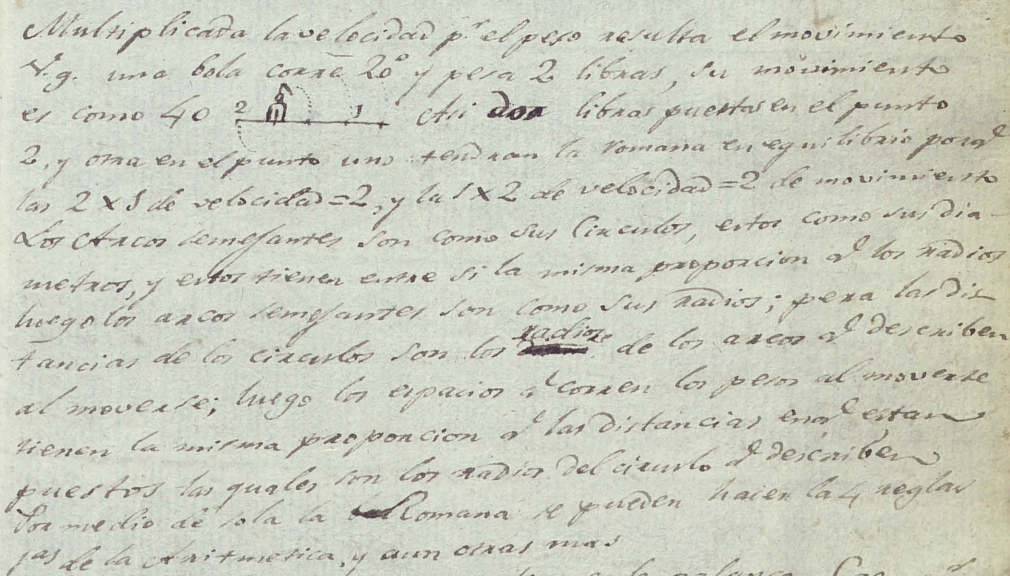 Multiplicada la velocidad pr el peso resulta el movimiento
V.g. una bola corre 20° y pesa 2 libras, su movimiento
es como 40 2 1 Asi dos libras puestas en el punto
2, y otra en el punto uno tendran la romana en equilibrio porq
las 2 x 1 de velocidad = 2, y la 1 x 2 de velocidad = 2 de movimiento
Los Arcos semejantes son como sus Circulos, estos como sus dia-
metros, y estos tienen entre si la misma proporcion q los radios
luego los arcos semejantes son como sus radios; pera las dis-
tancias de los circulos son los radios de los arcos q describen
al moverse; luego los espacios q corren los pesos al moverse
tienen la misma proporcion q las distancias en q estan
puestos las quales son los radios del circulo q describen
Por medio de sola la Romana se pueden hacer la 4 reglas
jas de la Aritmetica, y aun otras mas
la balanza